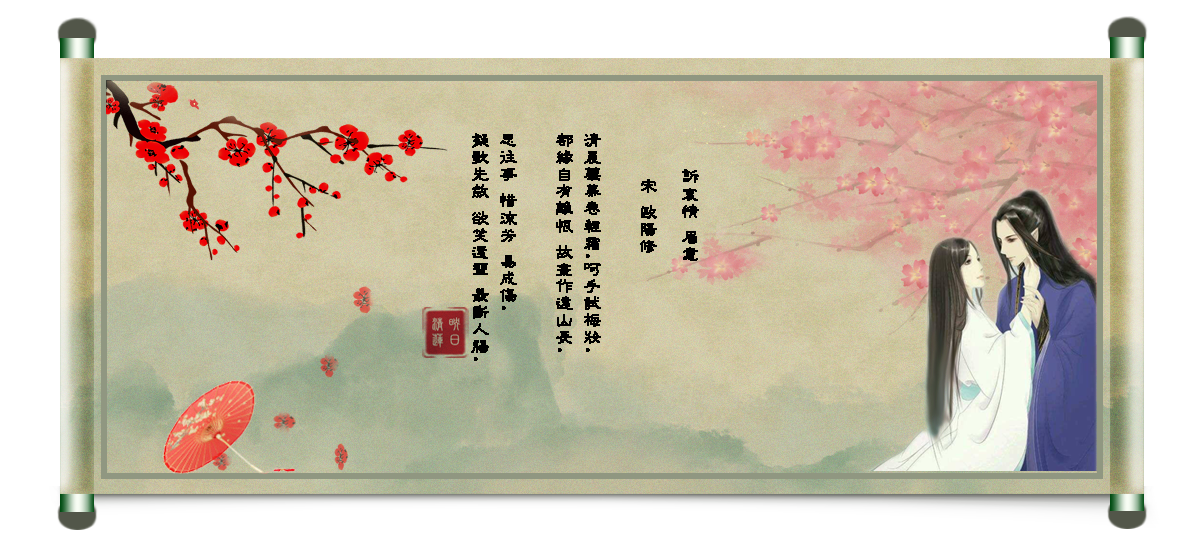 訴衷情 眉意
宋 歐陽修
清晨簾幕卷輕霜.呵手試梅妝.
都緣自有離恨 故畫作遠山長.
思往事 惜流芳 易成傷.
擬歌先斂 欲笑還顰 最斷人腸.
映日